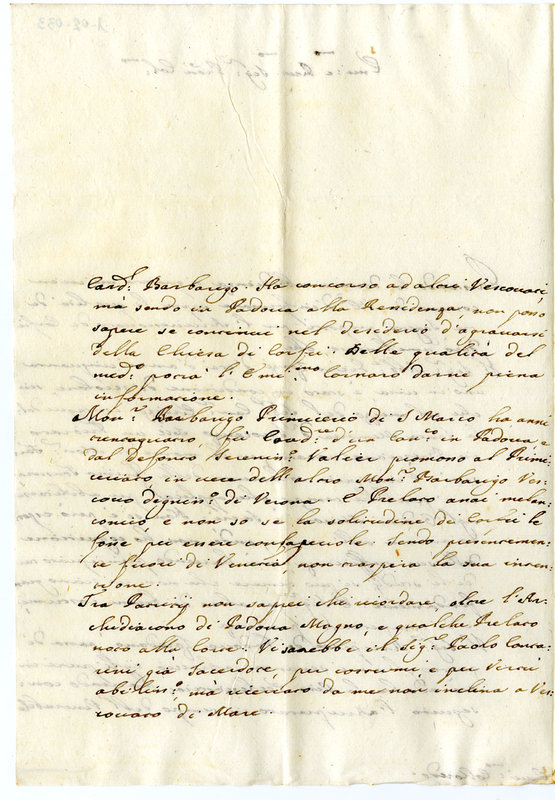 Card.l Barbarigo. Ha concorso ad altri Vescovati
mà sendo in Padova alla Residenza, non posso
sapere se continui nel desiderio d'aggravarsi
della Chiesa di Corfù. Delle qualità del
med.o potrà l'Emi.mo Cornaro darne piena
informazione.
Mon.r Barbarigo Primicerio di S Marco ha anni
trentaquatro, fù Coad.re d'un Can.co in Padova e
dal Defonto Sereniss.o Valier promosso al Primi=
ceriato in vece dell'altro Mon.r Barbarigo Ves=
covo degniss.o di Verona. È Prelato assai melan=
conico, e non so se la solitudine di Corfù le
fosse per essere confacevole. Sendo presentemen=
te fuori di Venezia non traspira la sua inten=
zione.
Tra Patritij non saprei che ricordare, oltre l'Ar=
chidiacono di Padova Magno, e qualche Prelato
noto alla Corte. Vi sarebbe il Sig.r Paolo Conta=
rini già Sacerdote, per costumi, e per virtù
abiliss.o, mà ricercato da me non inclina a Ves=
covato di Mare.